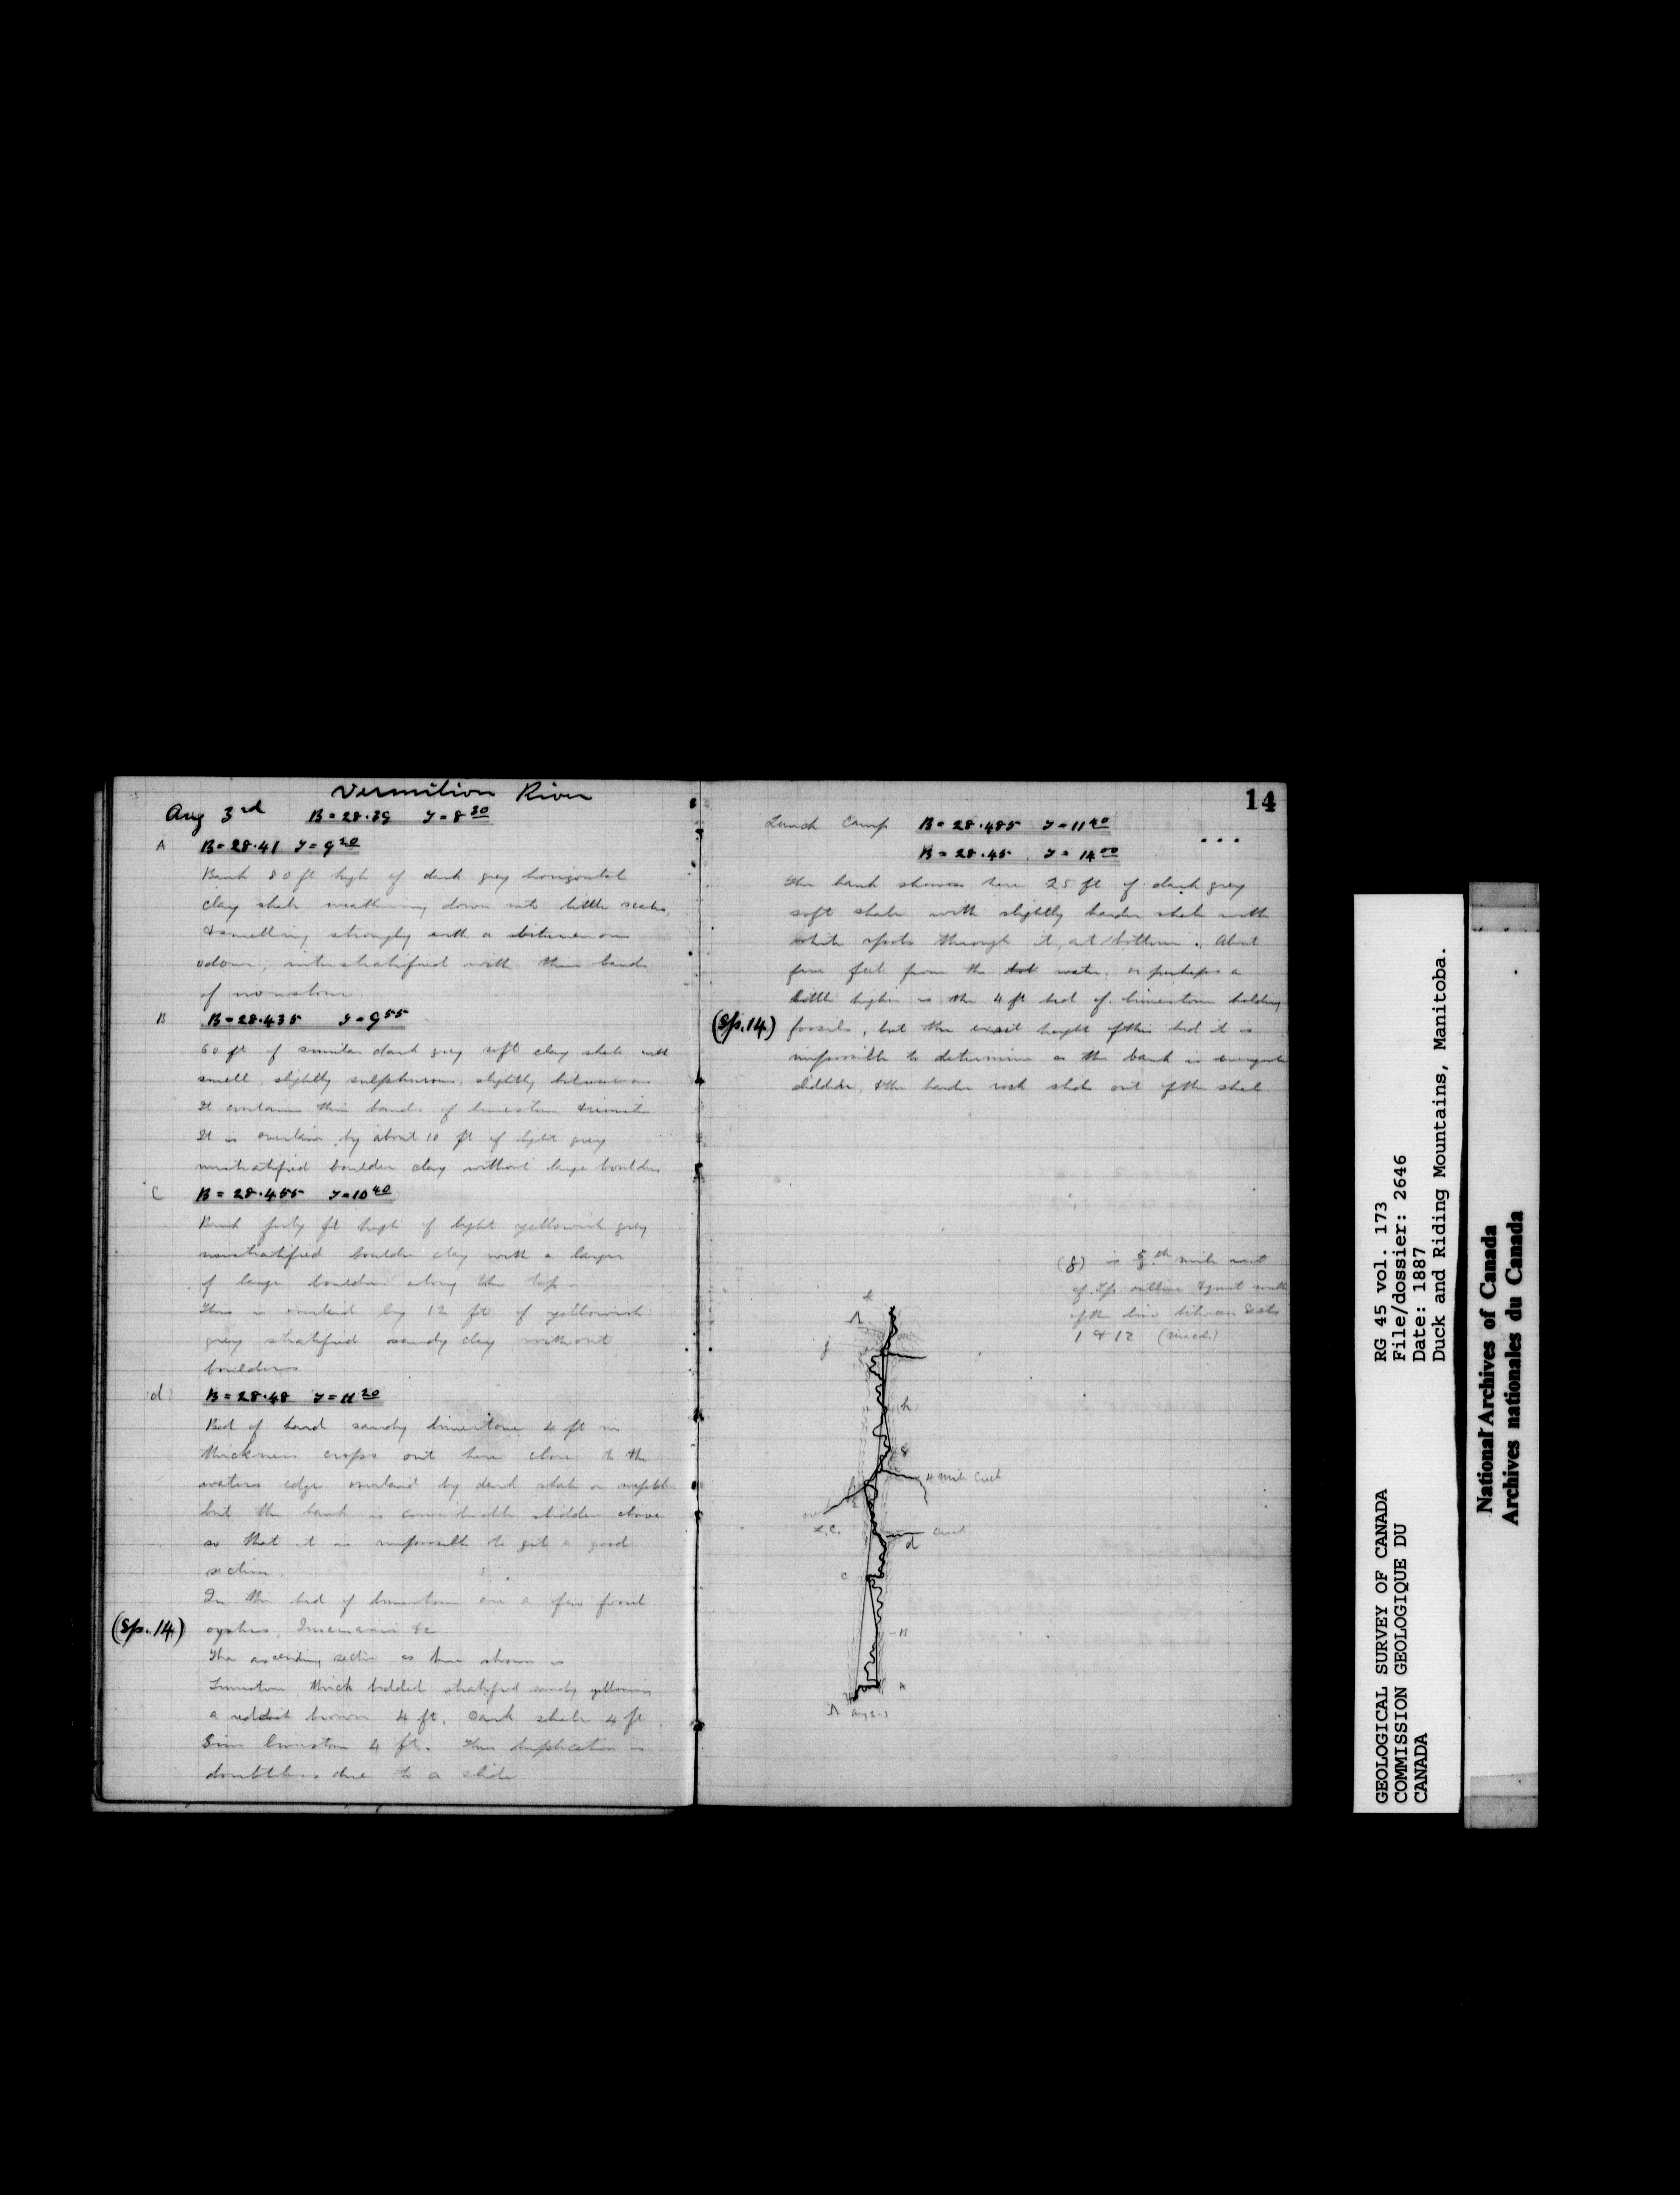 Vermilion River
Aug 3rd B = 28.39 T = 8 30
A B = 28.41 T = 9 20
Bank 80 ft high of dark grey horizontal
clay shale weathering down into little scales,
& smelling strongly with a bitumenous
odour, interstratified with thin bands
of ironstone
B B = 28.435 T = 9 55
60 ft of similar dark grey soft clay shale with
smell slightly sulphurous, slightly bitumenous
It contains thin bands of limestone
It is overlain by about 10 ft of light grey
unstratified boulder clay without large boulders
C B = 28.455 T = 10 40
Bank forty ft high of light yellowish grey
unstratified boulder clay with a
of large boulders along the top
This is overlaid by 12 ft of yellowish
grey stratified sandy clay without
boulders
d B = 28.48 T = 11 20
Bed of hard sandy limestone 4 ft in
thickness crops out here close to the
waters edge overlaid by dark shale
but the bank is considerable slidden above
so that it is impossible to get a good
section.
In the bed of limestone are a few fossil
(Sp. 14) oysters, Inoceramus &c
The ascending section as here shown is
Limestone, thick bedded stratified sandy
a reddish brown 4 ft. Dark shale 4 ft
Sim limestone 4 ft. This duplication is
doubtless due to a slide
14
Lunch Camp B = 28.485 T = 11 40
B = 28.45 T = 14 00
The bank shows here 25 ft of dark grey
soft shale with slightly harder shale with
white spots through it, at bottom. About
five feet from the water, or perhaps a
little higher is the 4 ft bed of limestone holding
(Sp. 14) fossils, but the exact height of this bed it is
impossible to determine as the bank is
slidden, & the harder rock slide out of the shale
(g) is 5/8 th mile west
of Tp. outline & just south
of the line between Sects
1 & 12
k
j
(h)
g
4 Mile Creek
L.C.
Creek
d
c
B
A
Aug 2-3
GEOLOGICAL SURVEY OF CANADA
COMMISSION GEOLOGIQUE DU
CANADA
RG 45 vol. 173
File/dossier: 2646
Date: 1887
Duck and Riding Mountains, Manitoba.
National Archives of Canada
Archives nationales du Canada